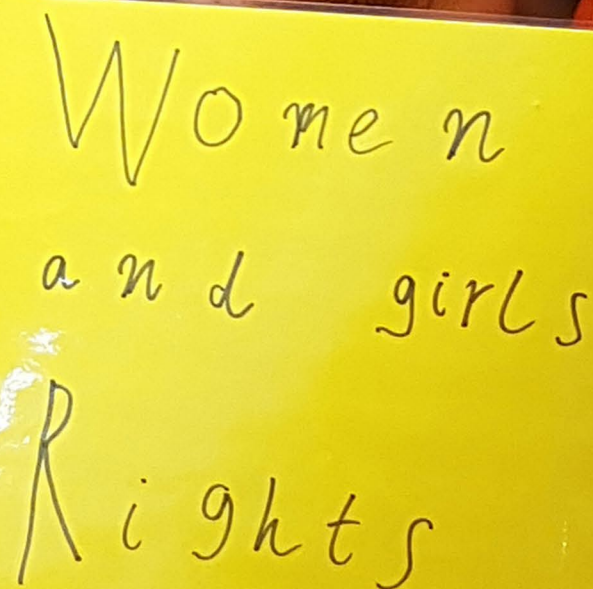 Women
and girls
Rights